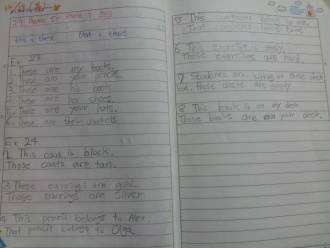 this → these that → those
Ex 23
1 These are my books.
These are your pencils.
These are his
These are her shoes.
These are your hats.
6 These are their jackets
Ex 24
1 This coat is black.
Those coats are tan.
3 These earrings are gold.
Those earrings are silver
4 This pencil belongs to Alex.
That pencil belongs to Olga
5 This
That
6 This exercise is easy.
Those exercises are hard.
7 Students are sitting at these desks
but those desks are empty
8 This book is on my desk.
Those books are on your desk.